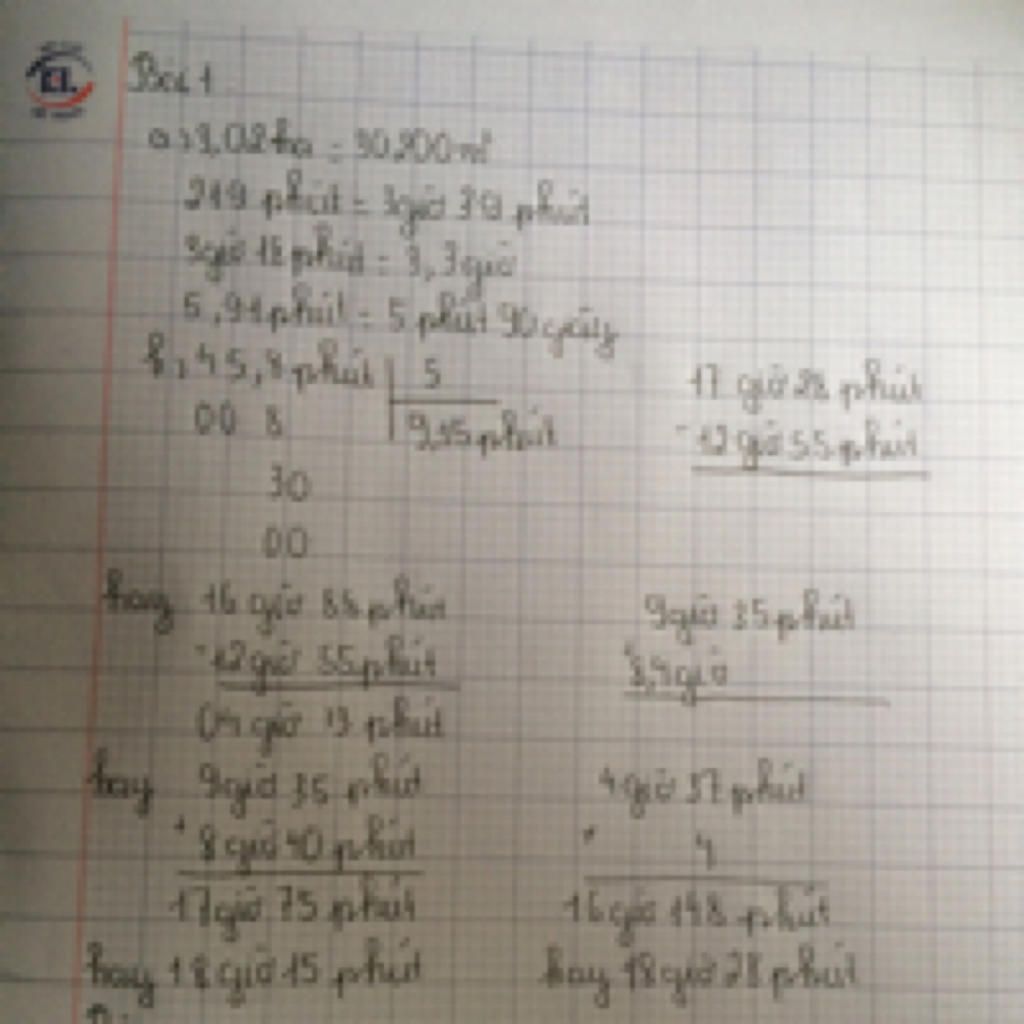 EL
Bài 1
a, 3,02 ha = 30200 m²
219 phút = 3 giờ 39 phút
3 giờ 18 phút = 3,3 giờ
5,91 phút = 5 phút 90 giây
b, 45,8 phút | 5
00 8 9,15 phút
30
00
17 giờ 28 phút
- 12 giờ 55 phút
hay 16 giờ 88 phút
- 12 giờ 55 phút
04 giờ 13 phút
9 giờ 35 phút
8,4 giờ
hay 9 giờ 35 phút
+ 8 giờ 40 phút
17 giờ 75 phút
hay 18 giờ 15 phút
4 giờ 37 phút
× 4
16 giờ 148 phút
hay 18 giờ 28 phút